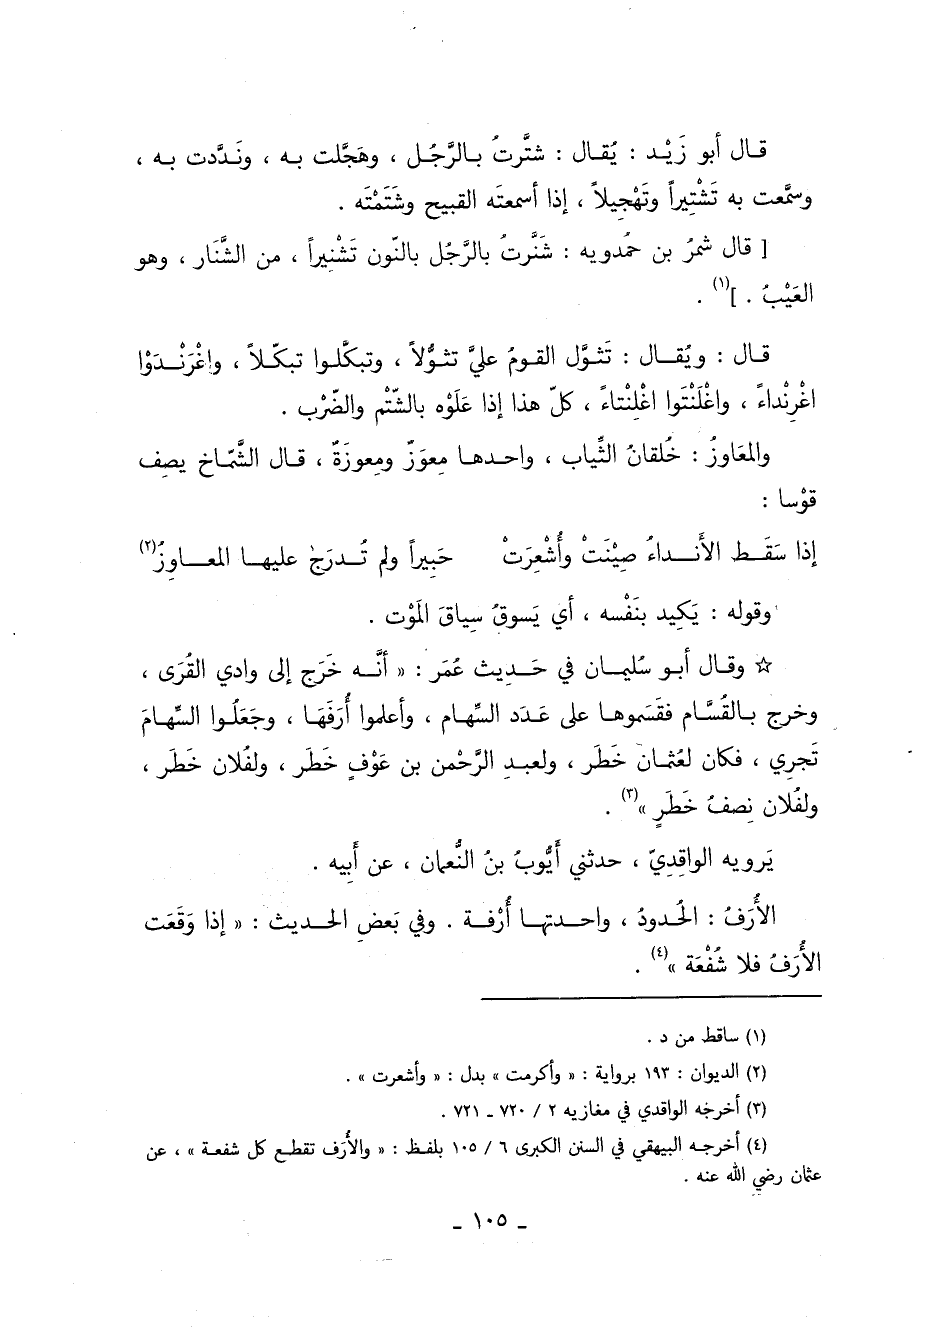 قال أبو زَيْد : يُقال : شتَّرتُ بالرَّجُل ، وهَجَّلت به ، ونَدَّدت به ،
وسمَّعت به تَشْتِيراً وتَهْجِيلاً ، إذا أسمعتَه القبيح وشَتَمْتَه .
[ قال شمْرُ بن حَمْدويه : شَنَّرتُ بالرَّجُل بالنّون تَشْنِيراً ، من الشَّنَار ، وهو
العَيْبُ . ](١) .
قال : ويُقال : تَثوَّل القومُ عليَّ تثوُّلاً ، وتبكَّلوا تبكّلاً ، واغْرَنْدَوْا
اغْرِنْداءً ، واغْلَنْتَوا اغْلِنْتاءً ، كلّ هذا إذا عَلَوْه بالشَّتْم والضّرْب .
والمَعَاوزُ : خُلقانُ الثِّياب ، واحدها مِعوَزٌ ومِعوزَةٌ ، قال الشَّمّاخ يصِف
قوْسا :
إذا سَقَط الأَنداءُ صِيْنَتْ وأُشْعِرَتْ حَبِيراً ولم تُدرَجْ عليها المعاوزُ(٢)
وقوله : يَكِيد بنَفْسه ، أي يَسوقُ سِياقَ المَوْت .
☆ وقال أبو سُليمان في حَديث عُمَر : « أنَّه خَرَج إلى وادي القُرَى ،
وخرج بالقُسَّام فقَسَموها على عَدَد السِّهام ، وأعلموا أُرَفَهَا ، وجَعَلُوا السِّهامَ
تَجري ، فكان لعُثمان خَطَر ، ولعبدِ الرَّحْمن بن عَوْفٍ خَطَر ، ولفُلان خَطَر ،
ولفُلان نِصفُ خَطَرٍ »(٣) .
يَرويه الواقِديّ ، حدثني أَيُّوبُ بنُ النُّعمان ، عن أَبِيه .
الأُرَفُ : الحُدودُ ، واحدتها أُرْفة . وفي بَعضِ الحديث : « إذا وَقَعَت
الأُرَفُ فلا شُفْعَة »(٤) .
(١) ساقط من د .
(٢) الديوان : ١٩٣ برواية : « وأكرمت » بدل : « وأشعرت » .
(٣) أخرجه الواقدي في مغازيه ٢ / ٧٢٠ ـ ٧٢١ .
(٤) أخرجه البيهقي في السنن الكبرى ٦ / ١٠٥ بلفظ : « والأُرَف تقطع كل شفعة » ، عن
عثمان رضي الله عنه .
ـ ١٠٥ ـ